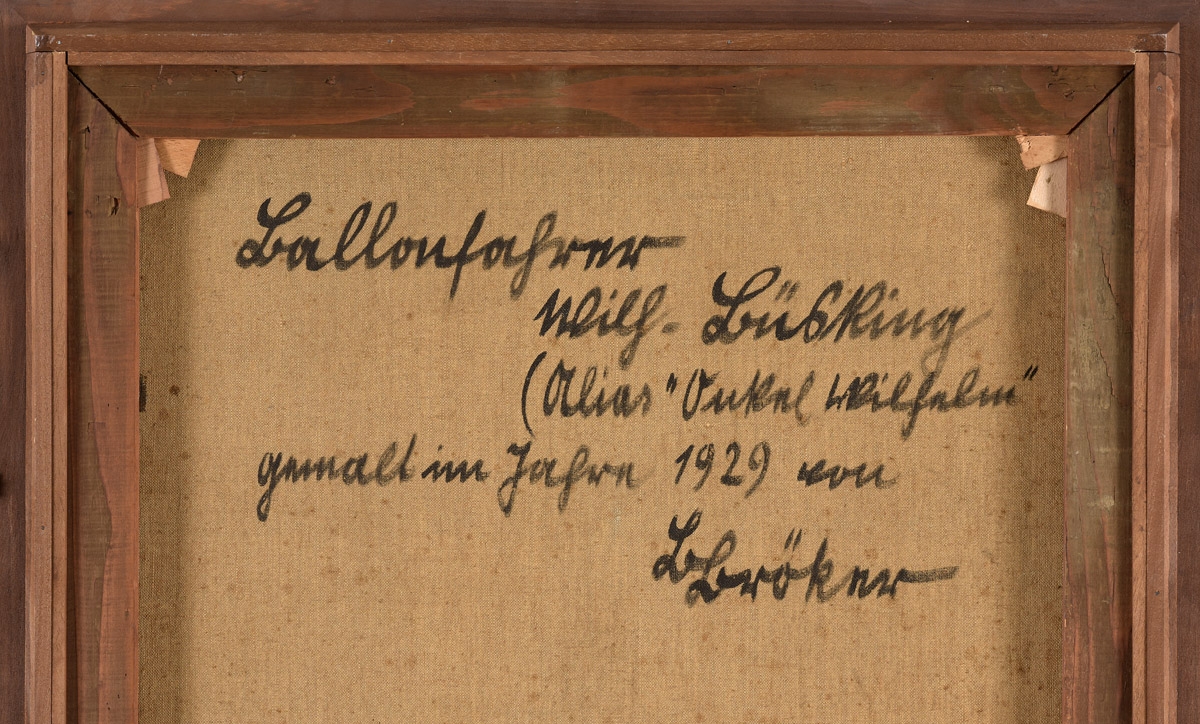 Ballonfahrer
Wilh. Büsking
(Alias "Onkel Wilhelm"
gemalt im Jahre 1929 von
BBröker